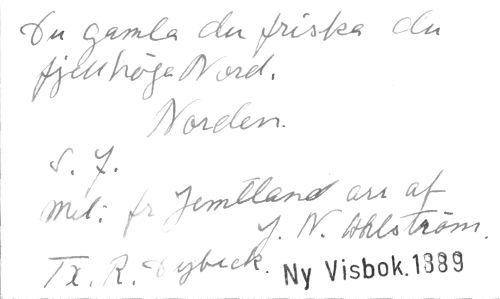 Du gamla du friska du
fjellhöga Nord.
Norden.
S. J.
Mel: fr Jemtland arr af
J. N. Ahlström.
Tx. R. Dybeck. Ny Visbok. 1889